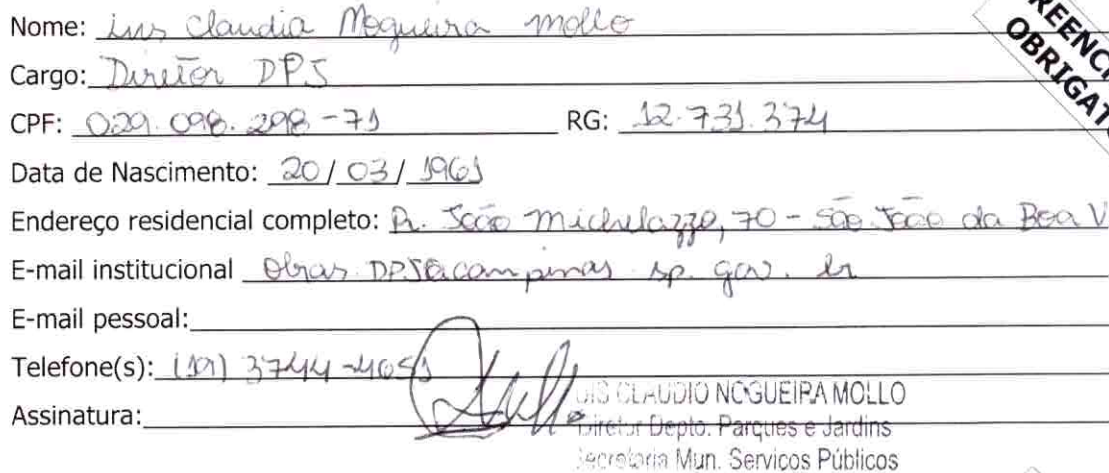 Nome: Luis Claudio Nogueira Mollo
Cargo: Diretor DPJ
OBRIGAT
CPF: 029.098.298-71 RG: 12.731.374
Data de Nascimento: 20/03/1961
Endereço residencial completo: R. João Michelazzo, 70 - São João da Boa V
E-mail institucional Obras.DPJ@campinas.sp.gov.br
E-mail pessoal:
Telefone(s): (19) 3744-4051
Assinatura:
LUIS CLAUDIO NOGUEIRA MOLLO
Diretor Depto. Parques e Jardins
Secretaria Mun. Servicos Públicos